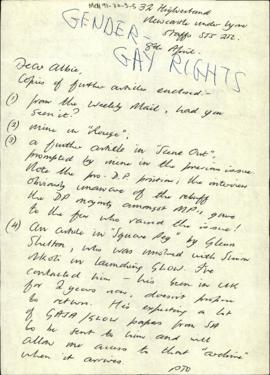 32 Highland
Newcastle under Lyme
Staffs ST5
8th April.
GENDER-
GAY RIGHTS
Dear Albie,
Copies of further articles enclosed:-
(1) from the Weekly Mail, had you
seen it?
(2) mine in "Rouge".
(3) a further article in "Scene Out",
prompted by mine in the previous issue.
Note the pro-D.P. position; the interview
obviously unaware of the rebuff
the DP majority amongst MP's gave
to the few who raised the issue!
(4) An article in "Square Peg" by Glenn
Shelton, who was involved with Simon
Nkoli in launching GLOW. I've
contacted him - his been in UK
for 2 years now, doesn't propose
to return. He's expecting a lot
of GASA/GLOW papers from SA
to be sent to him and will
allow me access to that "archive"
when it arrives.
PTO